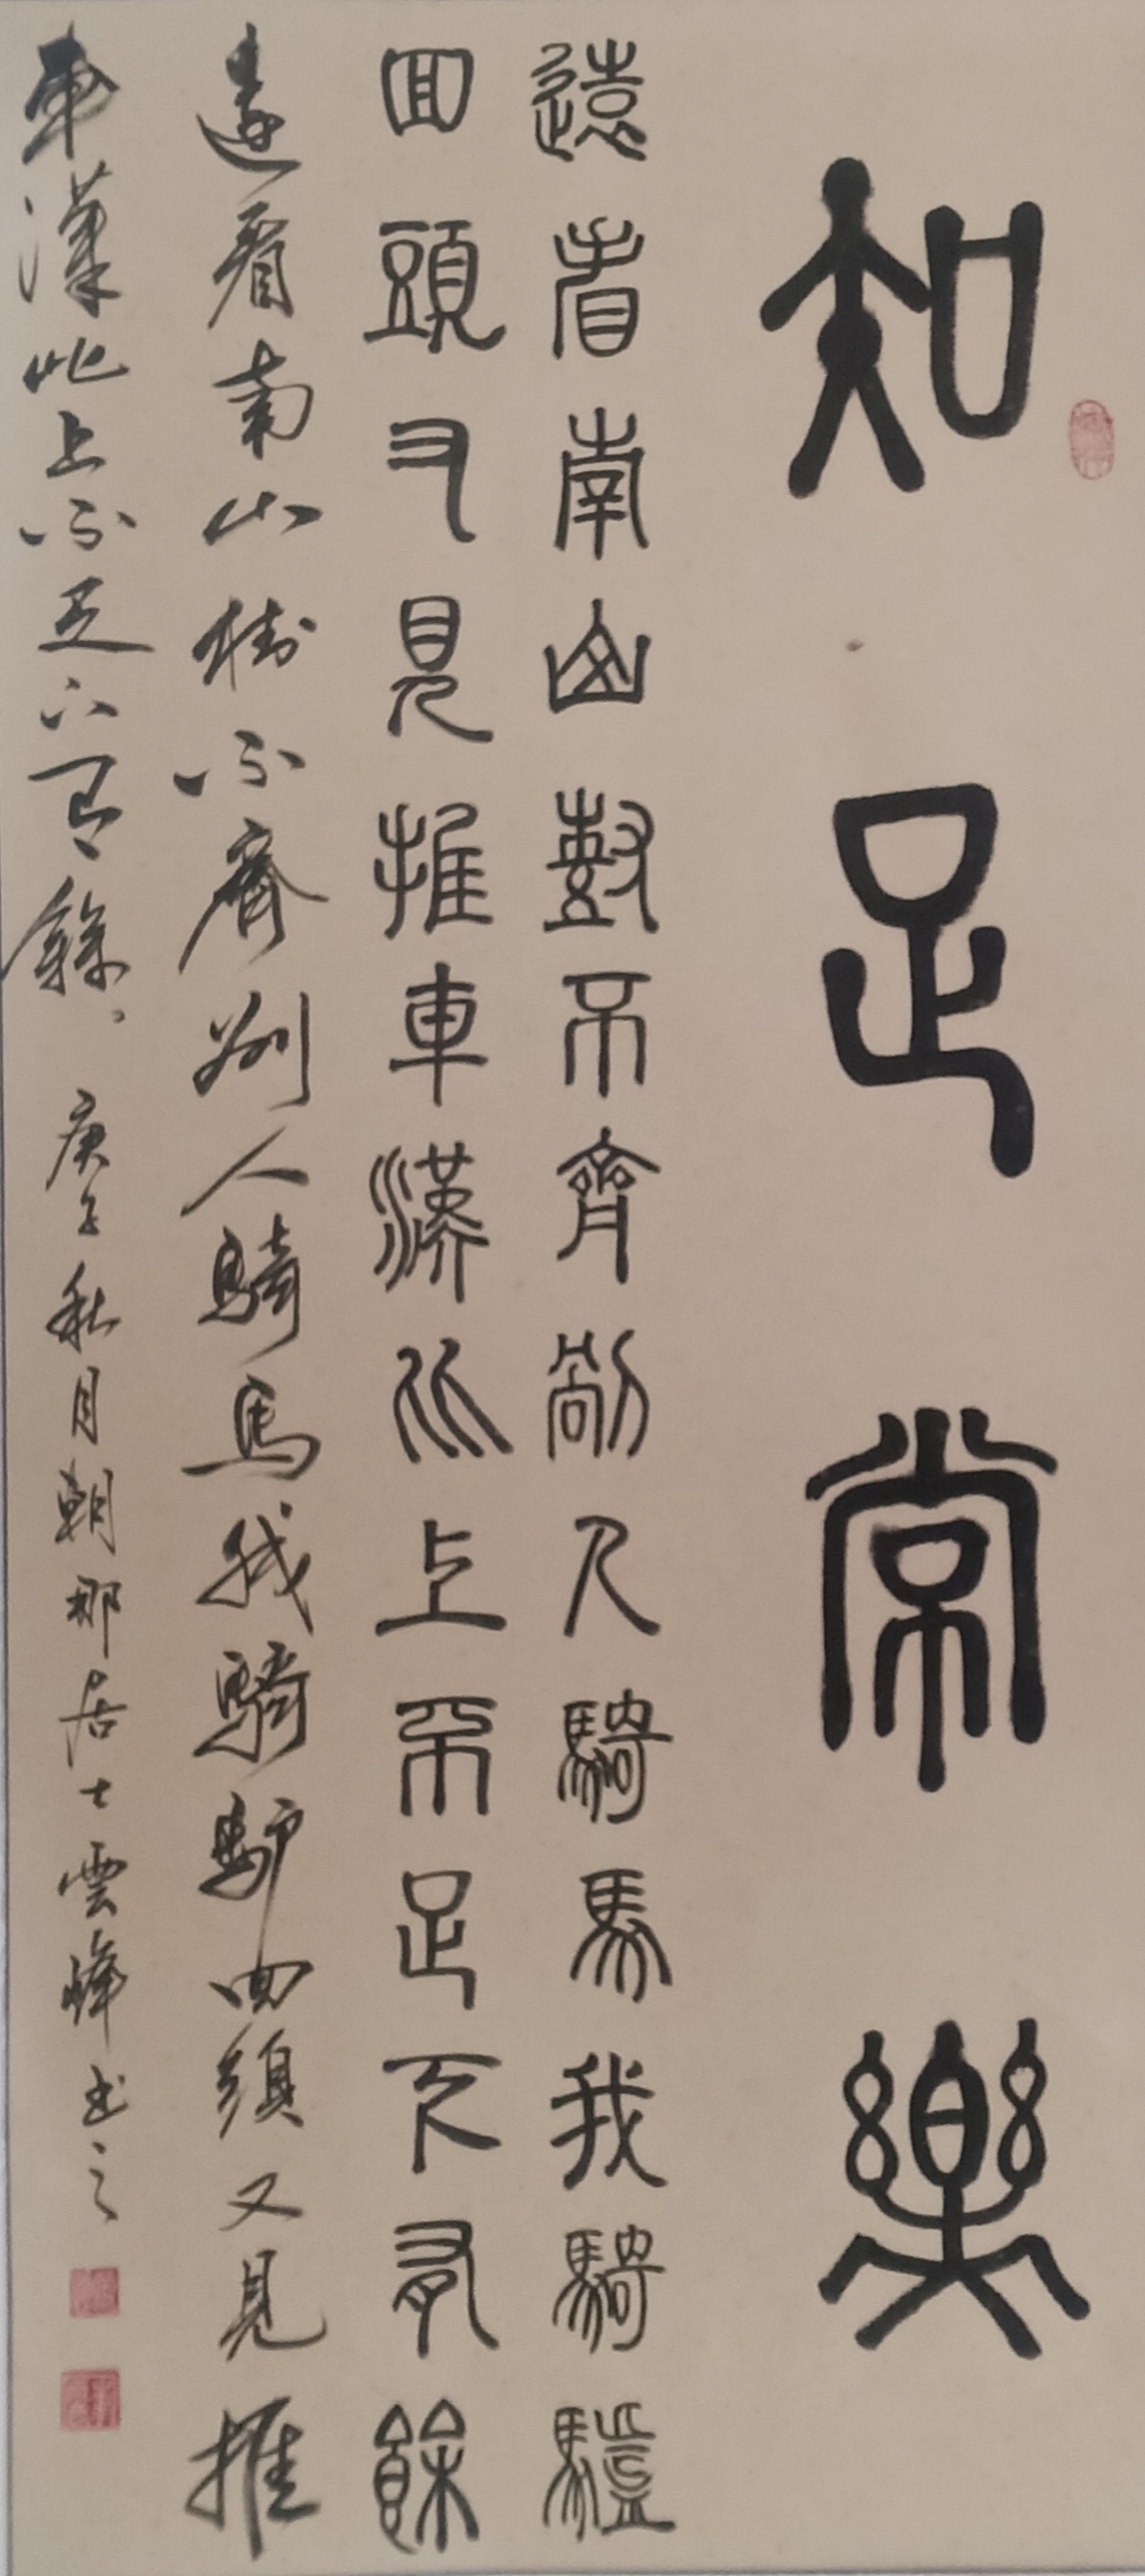 知足常樂
遠看南山樹不齊別人騎馬我騎驢
回頭又見推車漢比上不足下有餘
遠看南山樹不齊別人騎馬我騎驴回頭又見推
車漢比上不足下有餘
庚子秋月朝那居士雲峰书之